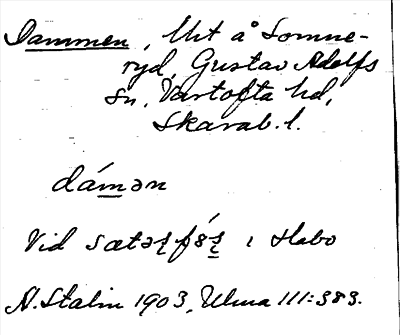 Dammen, Uit å Somne-
ryd, Gustav Adolfs
sn, Vartofta hd,
Skarab. l.
dámən
Vid sætəʂfǿʂ i Habo
A. Stalin 1903, Ulma 111:383.